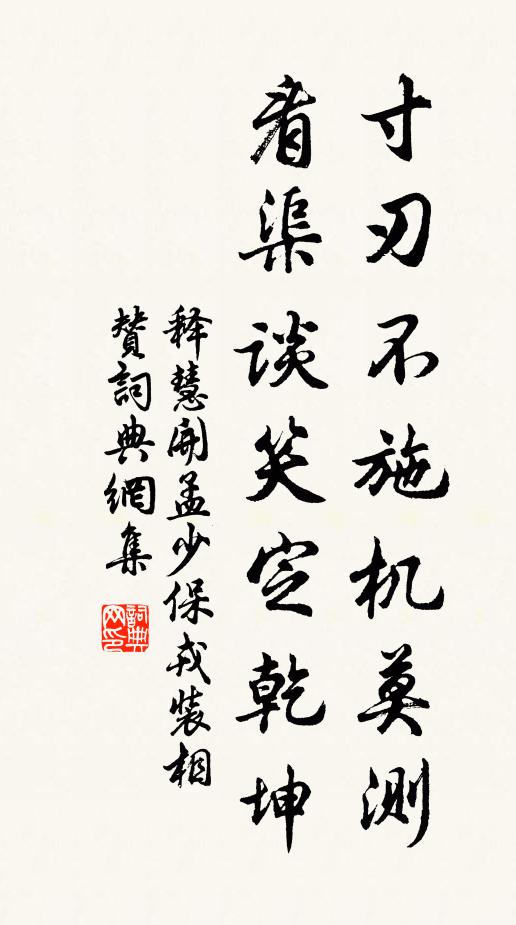 寸刃不施机莫测
看渠谈笑定乾坤
释慧開孟少保戎装相
赞詞典網集
詞典网印